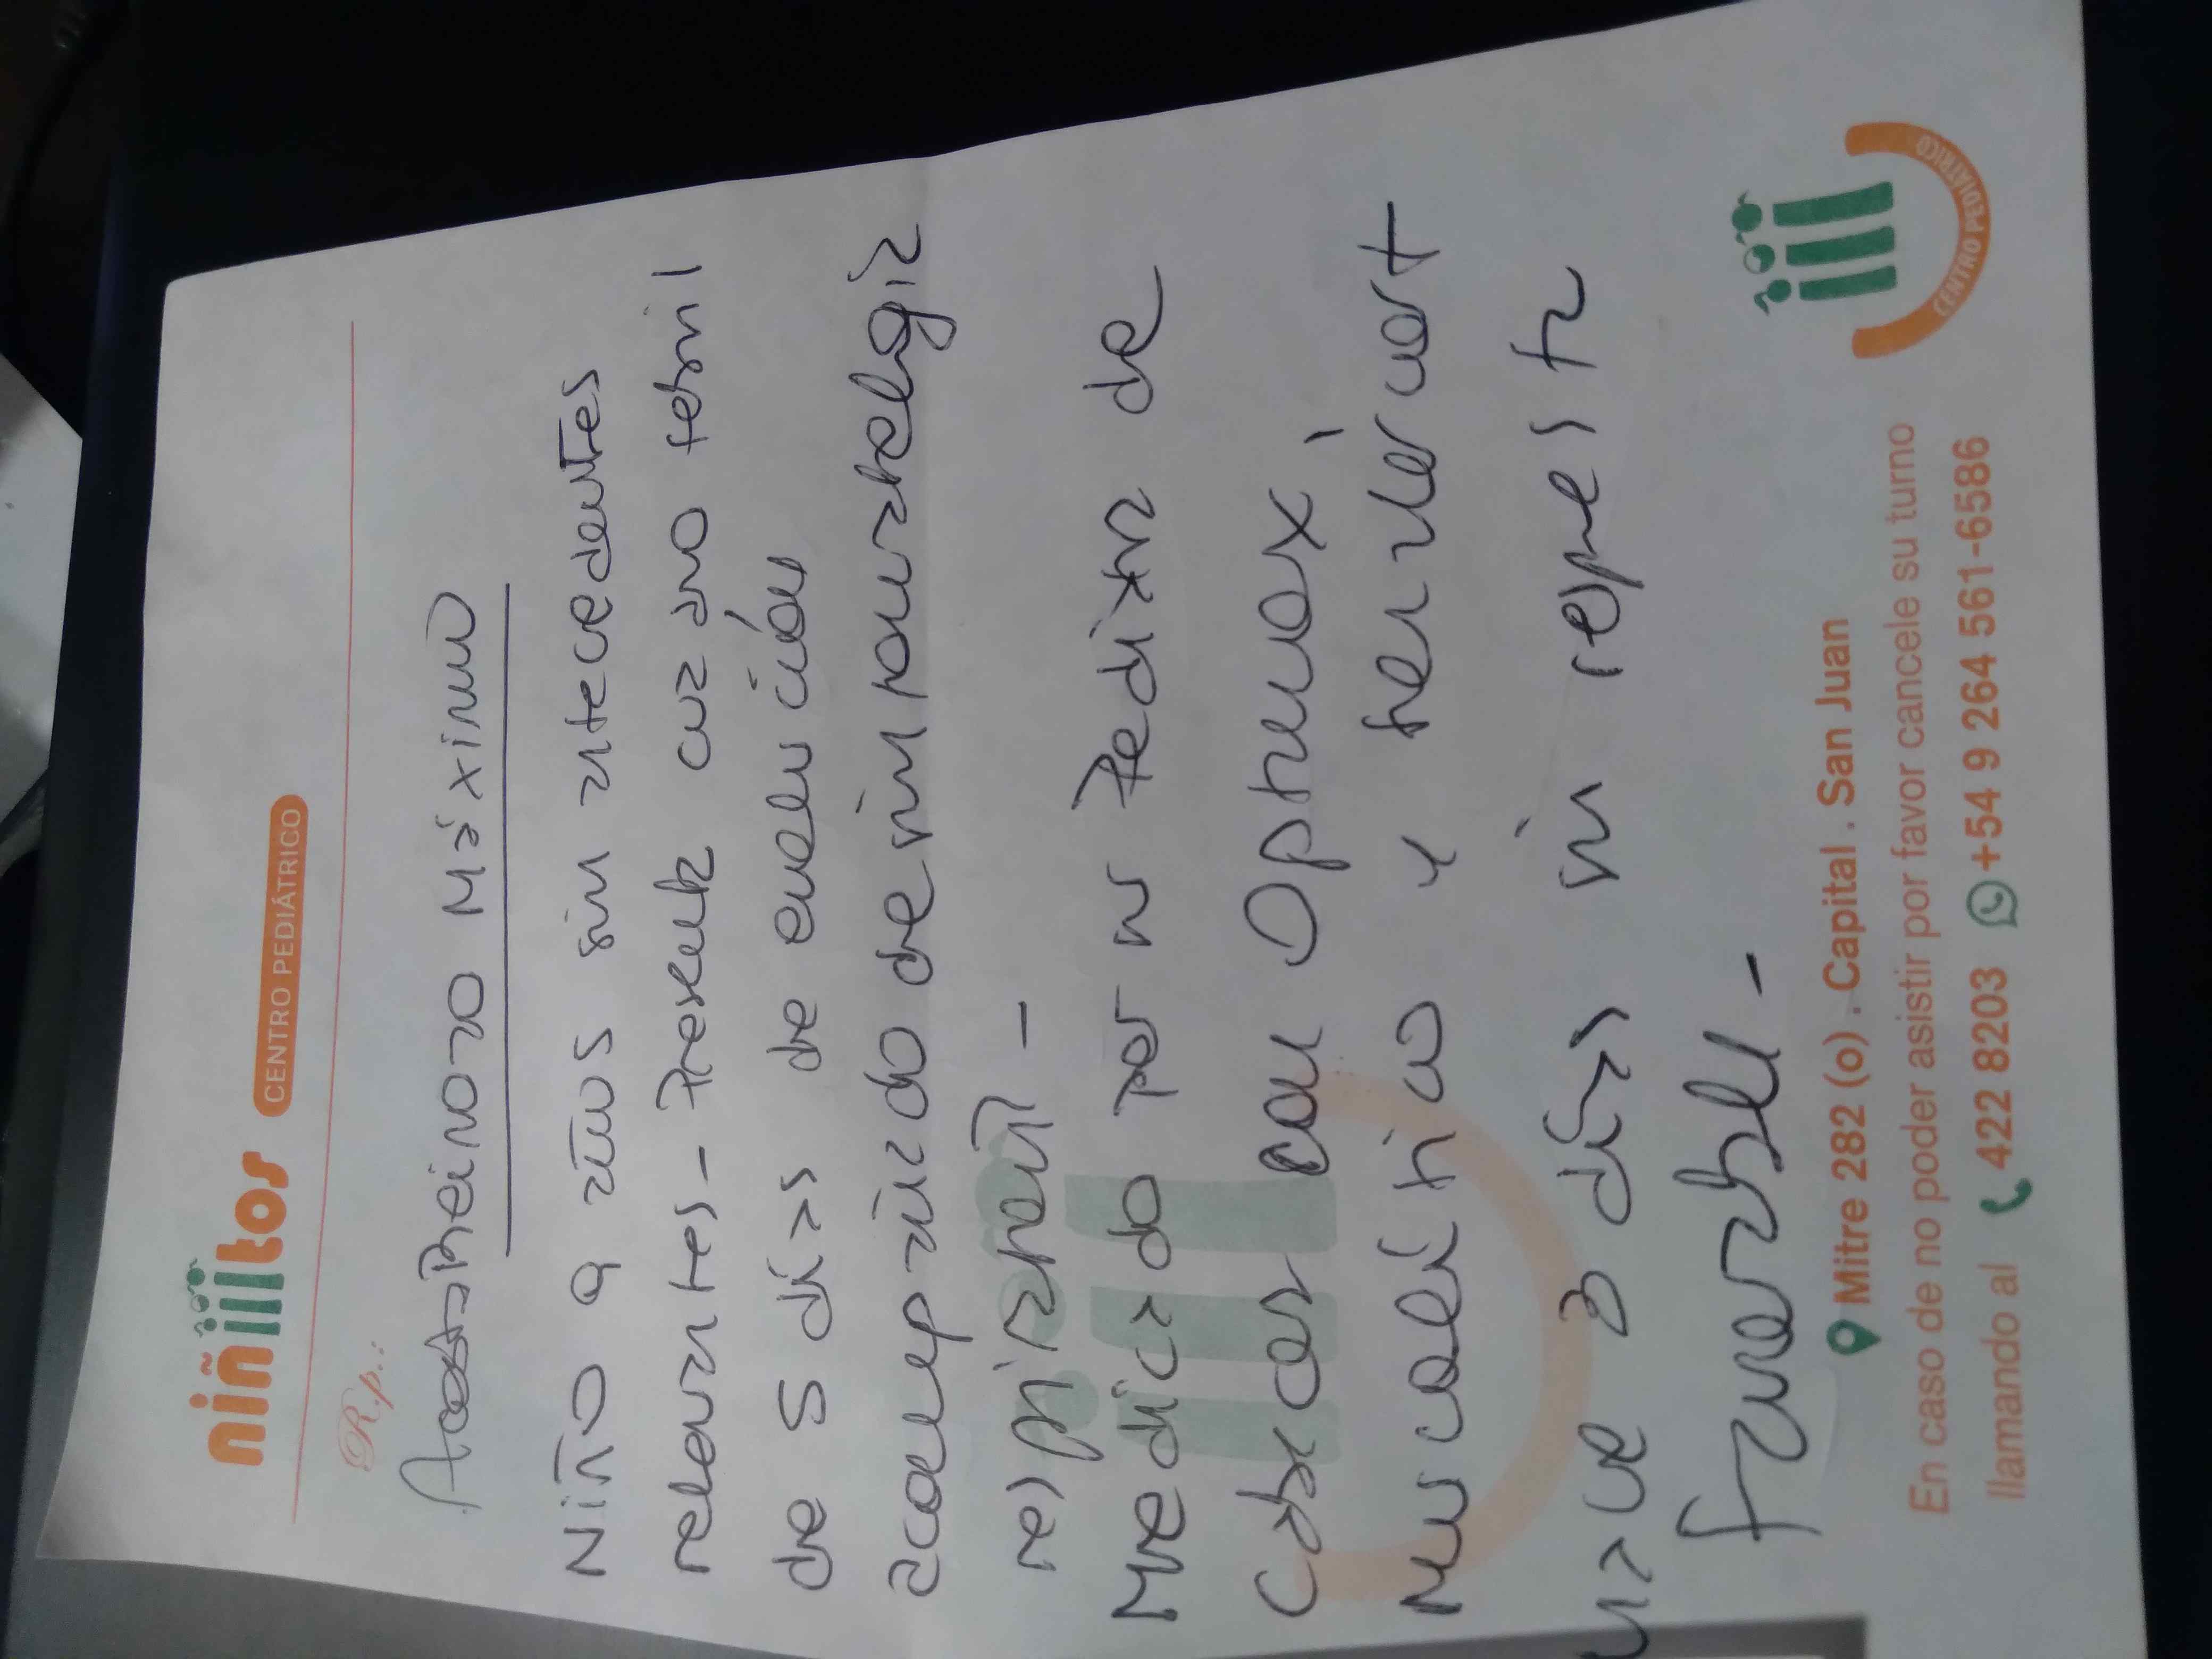 niñiitos CENTRO PEDIÁTRICO
Rp.:
Acosta Reinoso Máximo
Niño 9 años sin antecedentes
relevantes - Presenta cuadro febril
de 5 días de evolución
acompañado de sintomatología
respirat -
Medicado por su Pediatra de
Cabecera con Optamox
mucolítico y
hace 3 días sin respuesta
favorable -
Mitre 282 (o) . Capital . San Juan
En caso de no poder asistir por favor cancele su turno
llamando al 422 8203 +54 9 264 561-6586
CENTRO PEDIÁTRICO